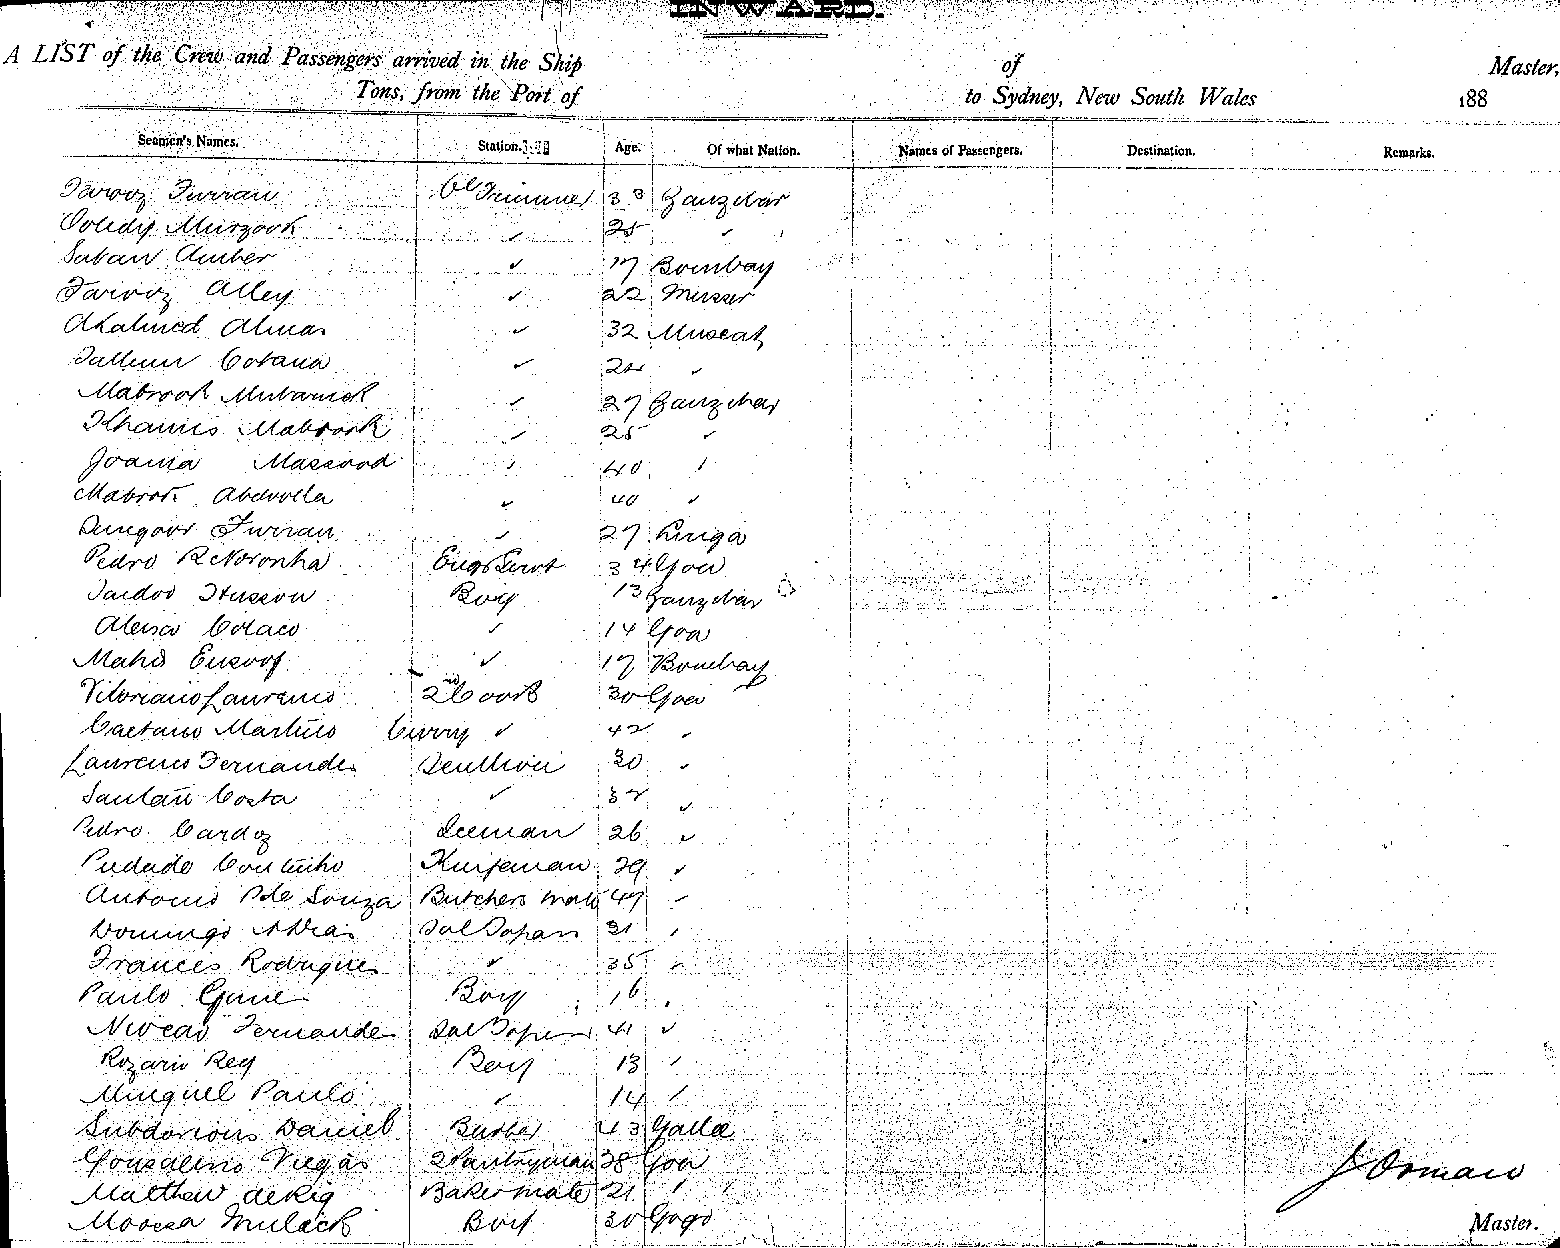 INWARD.
A LIST of the Crew and Passengers arrived in the Ship of Master,
Tons, from the Port of to Sydney, New South Wales 188
Seamen's Names. Station. Age. Of what Nation. Names of Passengers. Destination. Remarks.
Farooz Furran Cl Trimmer 33 Zanzibar
Murzook ✓ 25 ✓
Amber ✓ 17 Bombay
Farooz Alley ✓ 22 Musser
Ahalmed Almas ✓ 32 Muscat
✓ ✓
Mabrook Mubarrick ✓ 27 Zanzibar
Khamis Mabrook ✓ 25 ✓
Joama Massood ✓ 40 ✓
Mabrook Abdoolla ✓ 40 ✓
Furran ✓ 27 Linga
Pedro R Noronha Engrs Servt 34 Goa
Husson Boy 13 Zanzibar
Colaco ✓ 14 Goa
Mahd Eusoof ✓ 17 Bombay
Vitoriano Laurenco 2nd Cook 30 Goa
Caetano Martins Curry ✓ 42 ✓
Laurenco Fernandes 30 ✓
Santan Costa ✓ 32 ✓
Pedro Cardoz 26 ✓
Piedade Coutinho Knifeman 29 ✓
Antonio P de Souza Butchers mate 47 ✓
Domingo Dias Sal Topass 31 ✓
Frances Rodrigues ✓ 35 ✓
Paulo Boy 16 ✓
Fernandes Sal Topass 41 ✓
Rozario Rey Boy 13 ✓
Minguel Paulo ✓ 14 ✓
Daniel Barber 43 Galle
Gonsalino Viegas 2 Pantryman 38 Goa
Matthew deReg Baker mate 21 ✓
Moosa Mulick Boy 30 Gogo
Master.